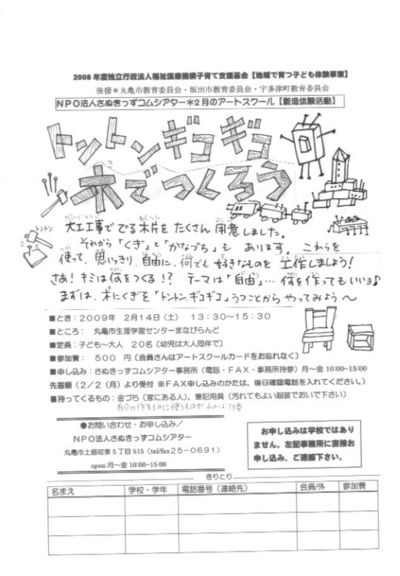 2008年度独立行政法人福祉医療機構子育て支援基金【地域で育つ子ども体験事業】
後援＊丸亀市教育委員会・坂出市教育委員会・宇多津町教育委員会
NPO法人さぬきっずコムシアター＊2月のアートスクール【創造体験活動】
トントンギコギコ
木でつくろう
大工工事ででる木片をたくさん用意しました。
それから「くぎ」と「かなづち」も あります。 これらを
使って、思いっきり、自由に、何でも好きなものを工作しましょう!
さあ!キミは何をつくる!? テーマは「自由」… 何を作ってもいいョ♪
まずは、木にくぎを「トンドンギコギコ」うつことから やってみよう〜
■とき：2009年 2月14日（土） 13：30〜15：30
■ところ： 丸亀市生涯学習センターまなびらんど
■定員：子ども〜大人 20名（幼児は大人同伴で）
■参加費： 500 円（会員さんはアートスクールカードをお忘れなく）
■申し込み：さぬきっずコムシアター事務所（電話・FAX・事務所持参）月〜金 10:00-15:00
先着順（2/2（月）より受付 ※FAX申し込みのかたは、後日確認電話を入れてください。
■持ってくるもの：金づち（家にある人）、筆記用具（汚れてもよい服装でおいで下さい）
●お問い合わせ・お申し込み／
NPO法人さぬきっずコムシアター
丸亀市土器町東5丁目515（tel/fax25-0691）
open:月〜金 10:00-15:00
お申し込みは学校ではあり
ません。左記事務所に直接お
申し込み、ご連絡下さい。
きりとり
名まえ 学校・学年 電話番号（連絡先） 会員/外 参加費